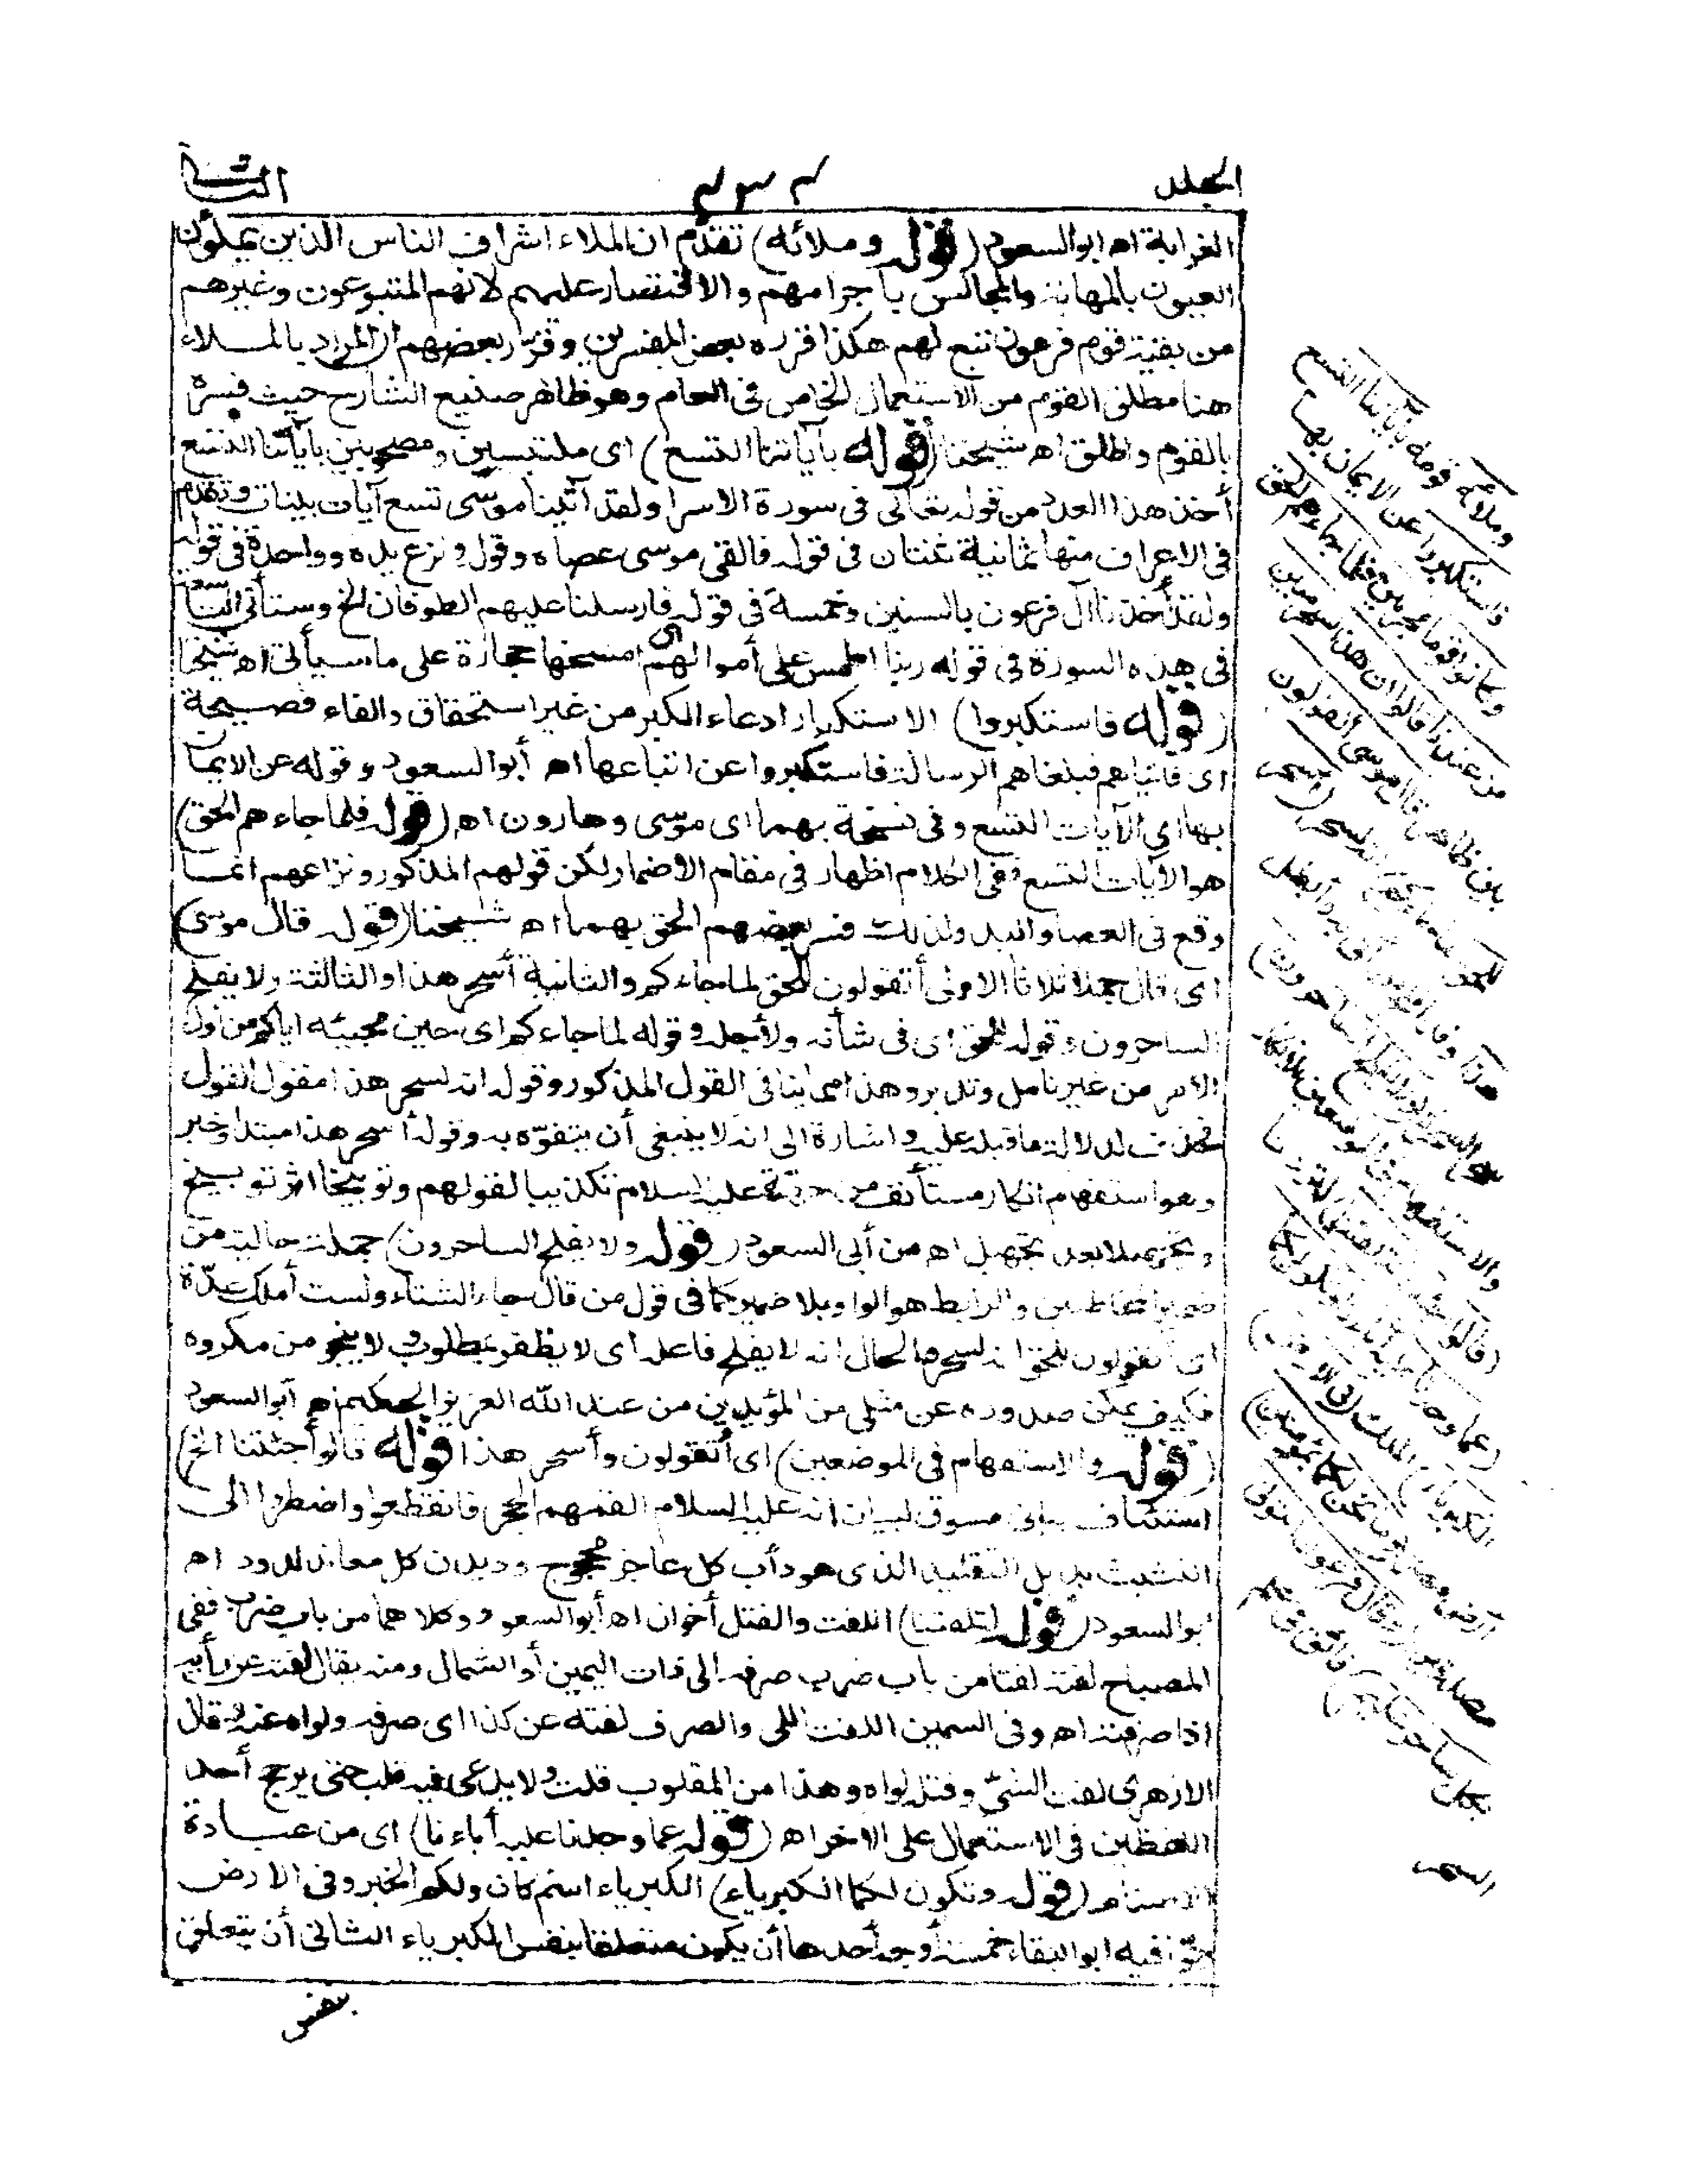 المجلد
الثانى
الغرابة اه ابو السعود (قوله وملائه) تقدم ان الملاء اشراف الناس الذين يملؤن
العيون بالمهابة والمجالس باجرامهم والاقتصار عليهم لانهم المتبوعون وغيرهم
من بقية قوم فرعون تبع لهم هكذا قرره بعض المفسرين وقرر بعضهم ان المراد بالملاء
هنا مطلق القوم من الاستعمال الخاص فى العام وهو ظاهر صنيع الشارح حيث فسره
بالقوم واطلق اه شيخنا (قوله بآياتنا التسع) اى ملتبسين ومصحوبين بآياتنا التسع
أخذ هذا العدد من قوله تعالى فى سورة الاسرا ولقد آتينا موسى تسع آيات بينات وتقدم
فى الاعراف منها ثمانية ثنتان فى قوله فالقى موسى عصاه وقوله ونزع يده وواحدة فى قوله
ولقد أخذنا آل فرعون بالسنين وخمسة فى قوله فارسلنا عليهم الطوفان الخ وستأتى التاسعة
فى هذه السورة فى قوله ربنا اطمس على أموالهم اى امسخها حجارة على ما سيأتى اه شيخنا
(قوله فاستكبروا) الاستكبار ادعاء الكبر من غير استحقاق والفاء فصيحة
اى فاتياهم فبلغاهم الرسالة فاستكبروا عن اتباعها اه أبو السعود وقوله عن الايمان
بها اي الآيات التسع وفى نسخة بهما اى موسى وهارون اه (قوله فلما جاءهم الحق)
هو الآيات التسع ففى الكلام اظهار فى مقام الاضمار لكن قولهم المذكور ونزاعهم انما
وقع فى العصا واليد ولذلك فسر بعضهم الحق بهما اه شيخنا (قوله قال موسى)
اى قال جملا ثلاثا الاولى أتقولون للحق لما جاءكم والثانية أسحر هذا والثالثة ولا يفلح
الساحرون وقوله للحق اى فى شأنه ولأجله وقوله لما جاءكم اى حين مجيئه اياكم من أول
الأمر من غير تأمل وتدبر وهذا مما ينافى القول المذكور وقوله انه لسحر هذا مقول القول
فحذف لدلالة ما قبله عليه واشارة الى انه لا ينبغى أن يتفوّه به وقوله أسحر هذا مبتدا وخبر
وهو استفهام انكار مستأنف من جهته عليه السلام تكذيبا لقولهم وتوبيخا اثر توبيخ
وتجهيلا بعد تجهيل اه من أبى السعود (قوله ولا يفلح الساحرون) جملة حالية من
ضمير المخاطبين والرابط هو الواو بلا ضمير كما فى قول من قال جاء الشتاء ولست أملك عدّة
اى أتقولون للحق انه لسحر والحال انه لا يفلح فاعله اى لا يظفر بمطلوب ولا ينجو من مكروه
فكيف يمكن صدوره عن مثلى من المؤيدين من عند الله العزيز الحكيم اه أبو السعود
(قوله والاستفهام فى الموضعين) اى أتقولون وأسحر هذا (قوله قالوا أجئتنا الخ)
استئناف بيانى مسوق لبيان انه عليه السلام القمهم الحجر فانقطعوا واضطروا الى
التشبث بذيل التقليد الذى هو دأب كل عاجز محجوج وديدن كل معاند لدود اه
ابو السعود (قوله لتلفتنا) اللفت والفتل أخوان اه أبو السعود وكلاهما من باب ضرب ففى
المصباح لفته لفتا من باب ضرب صرفه الى ذات اليمين أو الشمال ومنه يقال لفته عن رأيه
اذا صرفته اه وفى السمين اللفت اللى والصرف لفته عن كذا اى صرفه ولواه عنه وقال
الازهرى لفت الشئ وفتله لواه وهذا من المقلوب قلت ولا يدعى فيه قلب حتى يرجح أحد
اللفظين فى الاستعمال على الاخر اه (قوله عما وجدنا عليه أباءنا) اى من عبادة
الاصنام (قوله وتكون لكما الكبرياء) الكبرياء اسم كان ولكم الخبر وفى الارض
جوّز فيه ابو البقاء خمسة أوجه أحدها أن يكون متعلقا بنفس الكبرياء الثانى أن يتعلق
بنفس
وملائه قومه بآياتنا التسع
فاستكبروا عن الايمان بها
وكانوا قوما مجرمين فلما جاءهم الحق
من عندنا قالوا ان هذا لسحر مبين
بين ظاهر قال موسى أتقولون
للحق لما جاءكم انه لسحر أسحر
هذا وقد أفلح
الساحرون
والاستفهام فى الموضعين للانكار
قالوا أجئتنا لتلفتنا
عما وجدنا عليه آباءنا وتكون لكما
الكبرياء الملك فى الارض
مصدقين وقال فرعون ائتونى
بكل ساحر عليم
السحر